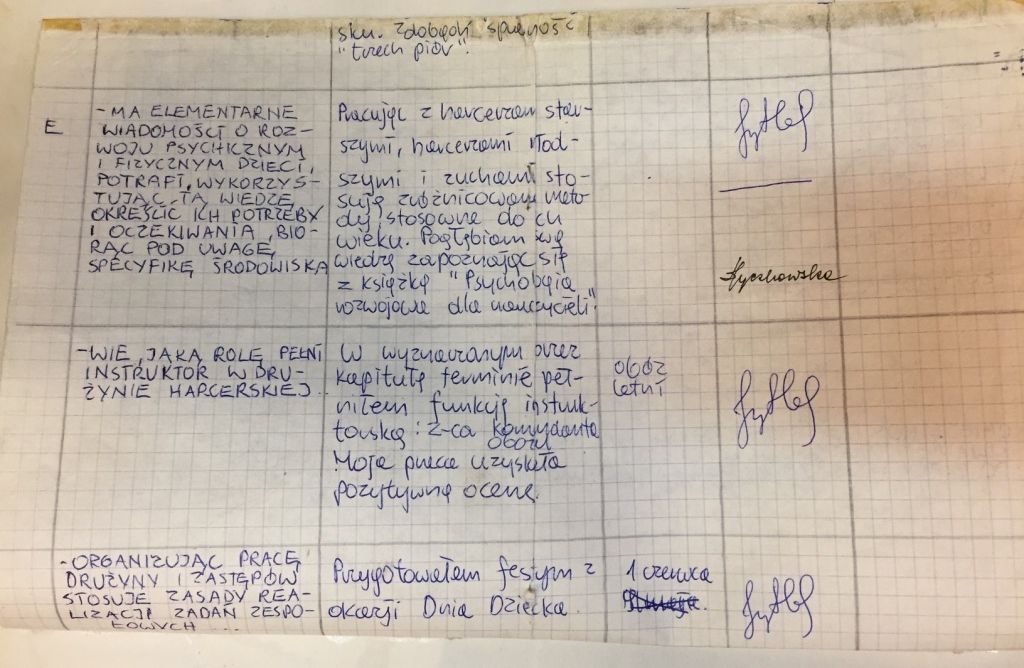 sku. Zdobędę sprawność
"trzech piór".
E
- MA ELEMENTARNE
WIADOMOŚCI O ROZ-
WOJU PSYCHICZNYM
I FIZYCZNYM DZIECI,
POTRAFI, WYKORZYS-
TUJĄC TĄ WIEDZĘ
OKREŚLIĆ ICH POTRZEBY
I OCZEKIWANIA, BIO-
RĄC POD UWAGĘ
SPECYFIKĘ ŚRODOWISKA
Pracując z harcerzami star-
szymi, harcerzami młod-
szymi i zuchami sto-
suję zróżnicowane meto-
dy stosowne do ich
wieku. Pogłębiam swą
wiedzę zapoznając się
z książką "Psychologia
rozwojowa dla nauczycieli".
- WIE, JAKĄ ROLĘ PEŁNI
INSTRUKTOR W DRU-
ŻYNIE HARCERSKIEJ
W wyznaczonym przez
kapitułę terminie peł-
niłem funkcję instruk-
torską: z-ca komendanta
obozu
Moja praca uzyskała
pozytywną ocenę.
obóz
letni
- ORGANIZUJĄC PRACĘ
DRUŻYNY I ZASTĘPÓW
STOSUJE ZASADY REA-
LIZACJI ZADAŃ ZESPO-
ŁOWYCH ...
Przygotowałem festyn z
okazji Dnia Dziecka.
1 czerwca